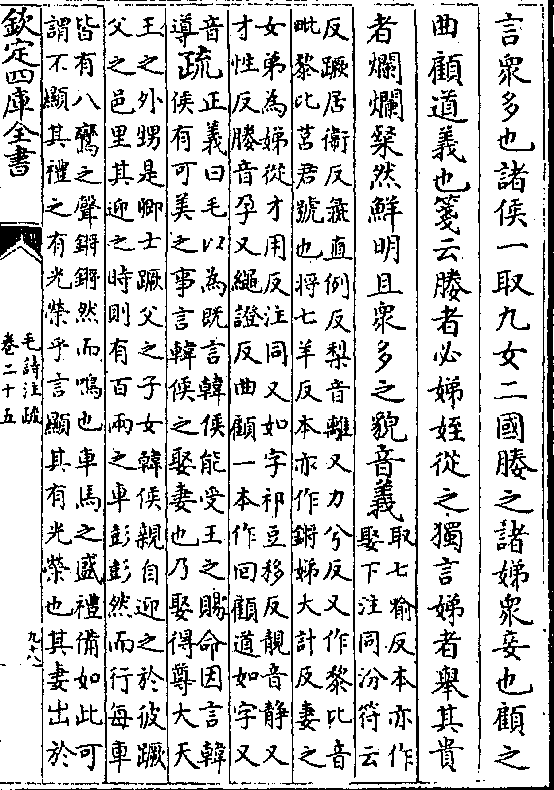 言衆多也諸侯一取九女二國媵之諸娣衆妾也顧之
曲顧道義也箋云媵者必娣姪從之獨言娣者舉其貴
者爛爛粲然鮮明且衆多之貌音義
取七喻反本亦作
娶下注同汾符云
反蹶居衛反彘直例反梨音離又力兮反又作黎比音
毗黎比莒君號也將七羊反本亦作鏘娣大計反妻之
女弟為娣從才用反注同又如字祁豆移反靚音靜又
才性反媵音孕又繩證反曲顧一本作回顧道如字又
音
導
疏
正義曰毛以為既言韓侯能受王之賜命因言韓
侯有可美之事言韓侯之娶妻也乃娶得尊大天
王之外甥是卿士蹶父之子女韓侯親自迎之於彼蹶
父之邑里其迎之時則有百兩之車彭彭然而行每車
皆有八鸞之聲鏘鏘然而鳴也車馬之盛禮備如此可
謂不顯其禮之有光榮乎言顯其有光榮也其妻出於
欽定四庫全書
毛詩注疏
卷二十五
九十八